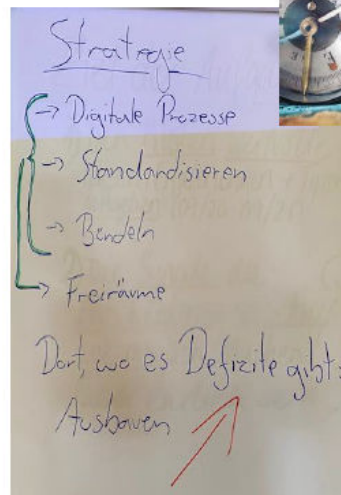 Strategie
→ Digitale Prozesse
→ Standardisieren
→ Bündeln
→ Freiräume
Dort, wo es Defizite gibt:
Ausbauen